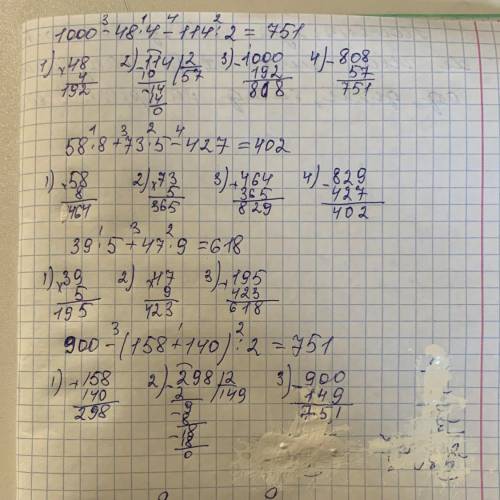 1000 - 48 · 4 - 114 : 2 = 751
1) 48 × 4 192 2) 114 | 2 57 10 14 14 0 3) - 1000 192 808 4) - 808 57 751
58 · 8 + 73 · 5 - 427 = 402
1) × 58 8 464 2) × 73 5 365 3) + 464 365 829 4) - 829 427 402
39 · 5 + 47 · 9 = 618
1) × 39 5 195 2) × 47 9 423 3) + 195 423 618
900 - (158 + 140) : 2 = 751
1) + 158 140 298 2) - 298 | 2 149 2 9 8 18 18 0 3) - 900 149 751